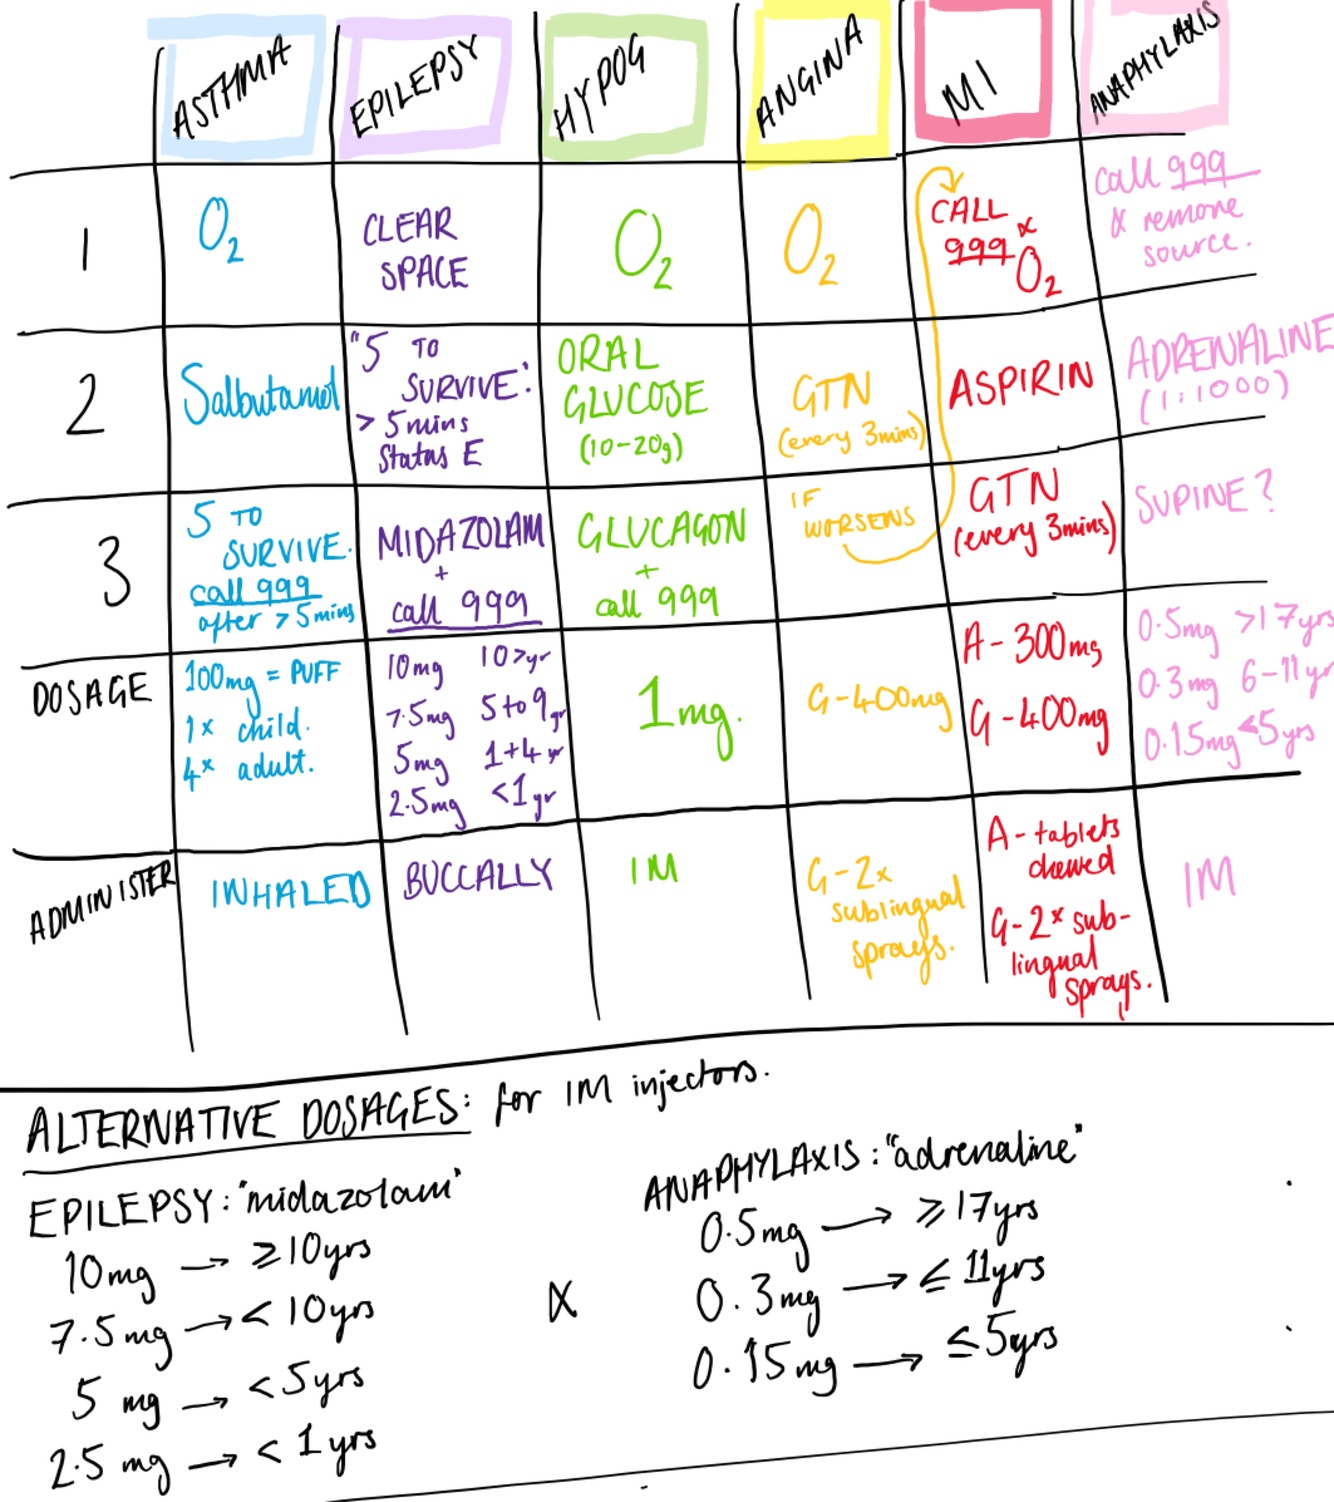 ASTHMA
EPILEPSY
HYPOG
ANGINA
MI
ANAPHYLAXIS
1
O2
CLEAR
SPACE
O2
O2
CALL
999 &
O2
call 999
& remove
source.
2
Salbutamol
"5 TO
SURVIVE"
> 5mins
Status E
ORAL
GLUCOSE
(10-20g)
GTN
(every 3mins)
ASPIRIN
ADRENALINE
(1:1000)
3
5 TO
SURVIVE.
call 999
after >5mins
MIDAZOLAM
+
call 999
GLUCAGON
+
call 999
IF
WORSENS
GTN
(every 3mins)
SUPINE?
DOSAGE
100mg = PUFF
1x child.
4x adult.
10mg 10>yr
7.5mg 5to9yr
5mg 1+4yr
2.5mg <1yr
1mg.
G-400mg
A-300mg
G-400mg
0.5mg >17yrs
0.3mg 6-11yr
0.15mg <5yrs
ADMINISTER
INHALED
BUCCALLY
IM
G-2x
sublingual
sprays.
A-tablets
chewed
G-2x sub-
lingual
sprays.
IM
ALTERNATIVE DOSAGES: for IM injectors.
EPILEPSY: "midazolam"
10mg → ≥10yrs
7.5mg → < 10yrs
5 mg → <5yrs
2.5 mg → < 1yrs
&
ANAPHYLAXIS: "adrenaline"
0.5mg → ≥17yrs
0.3mg → ≤ 11yrs
0.15mg → ≤5yrs